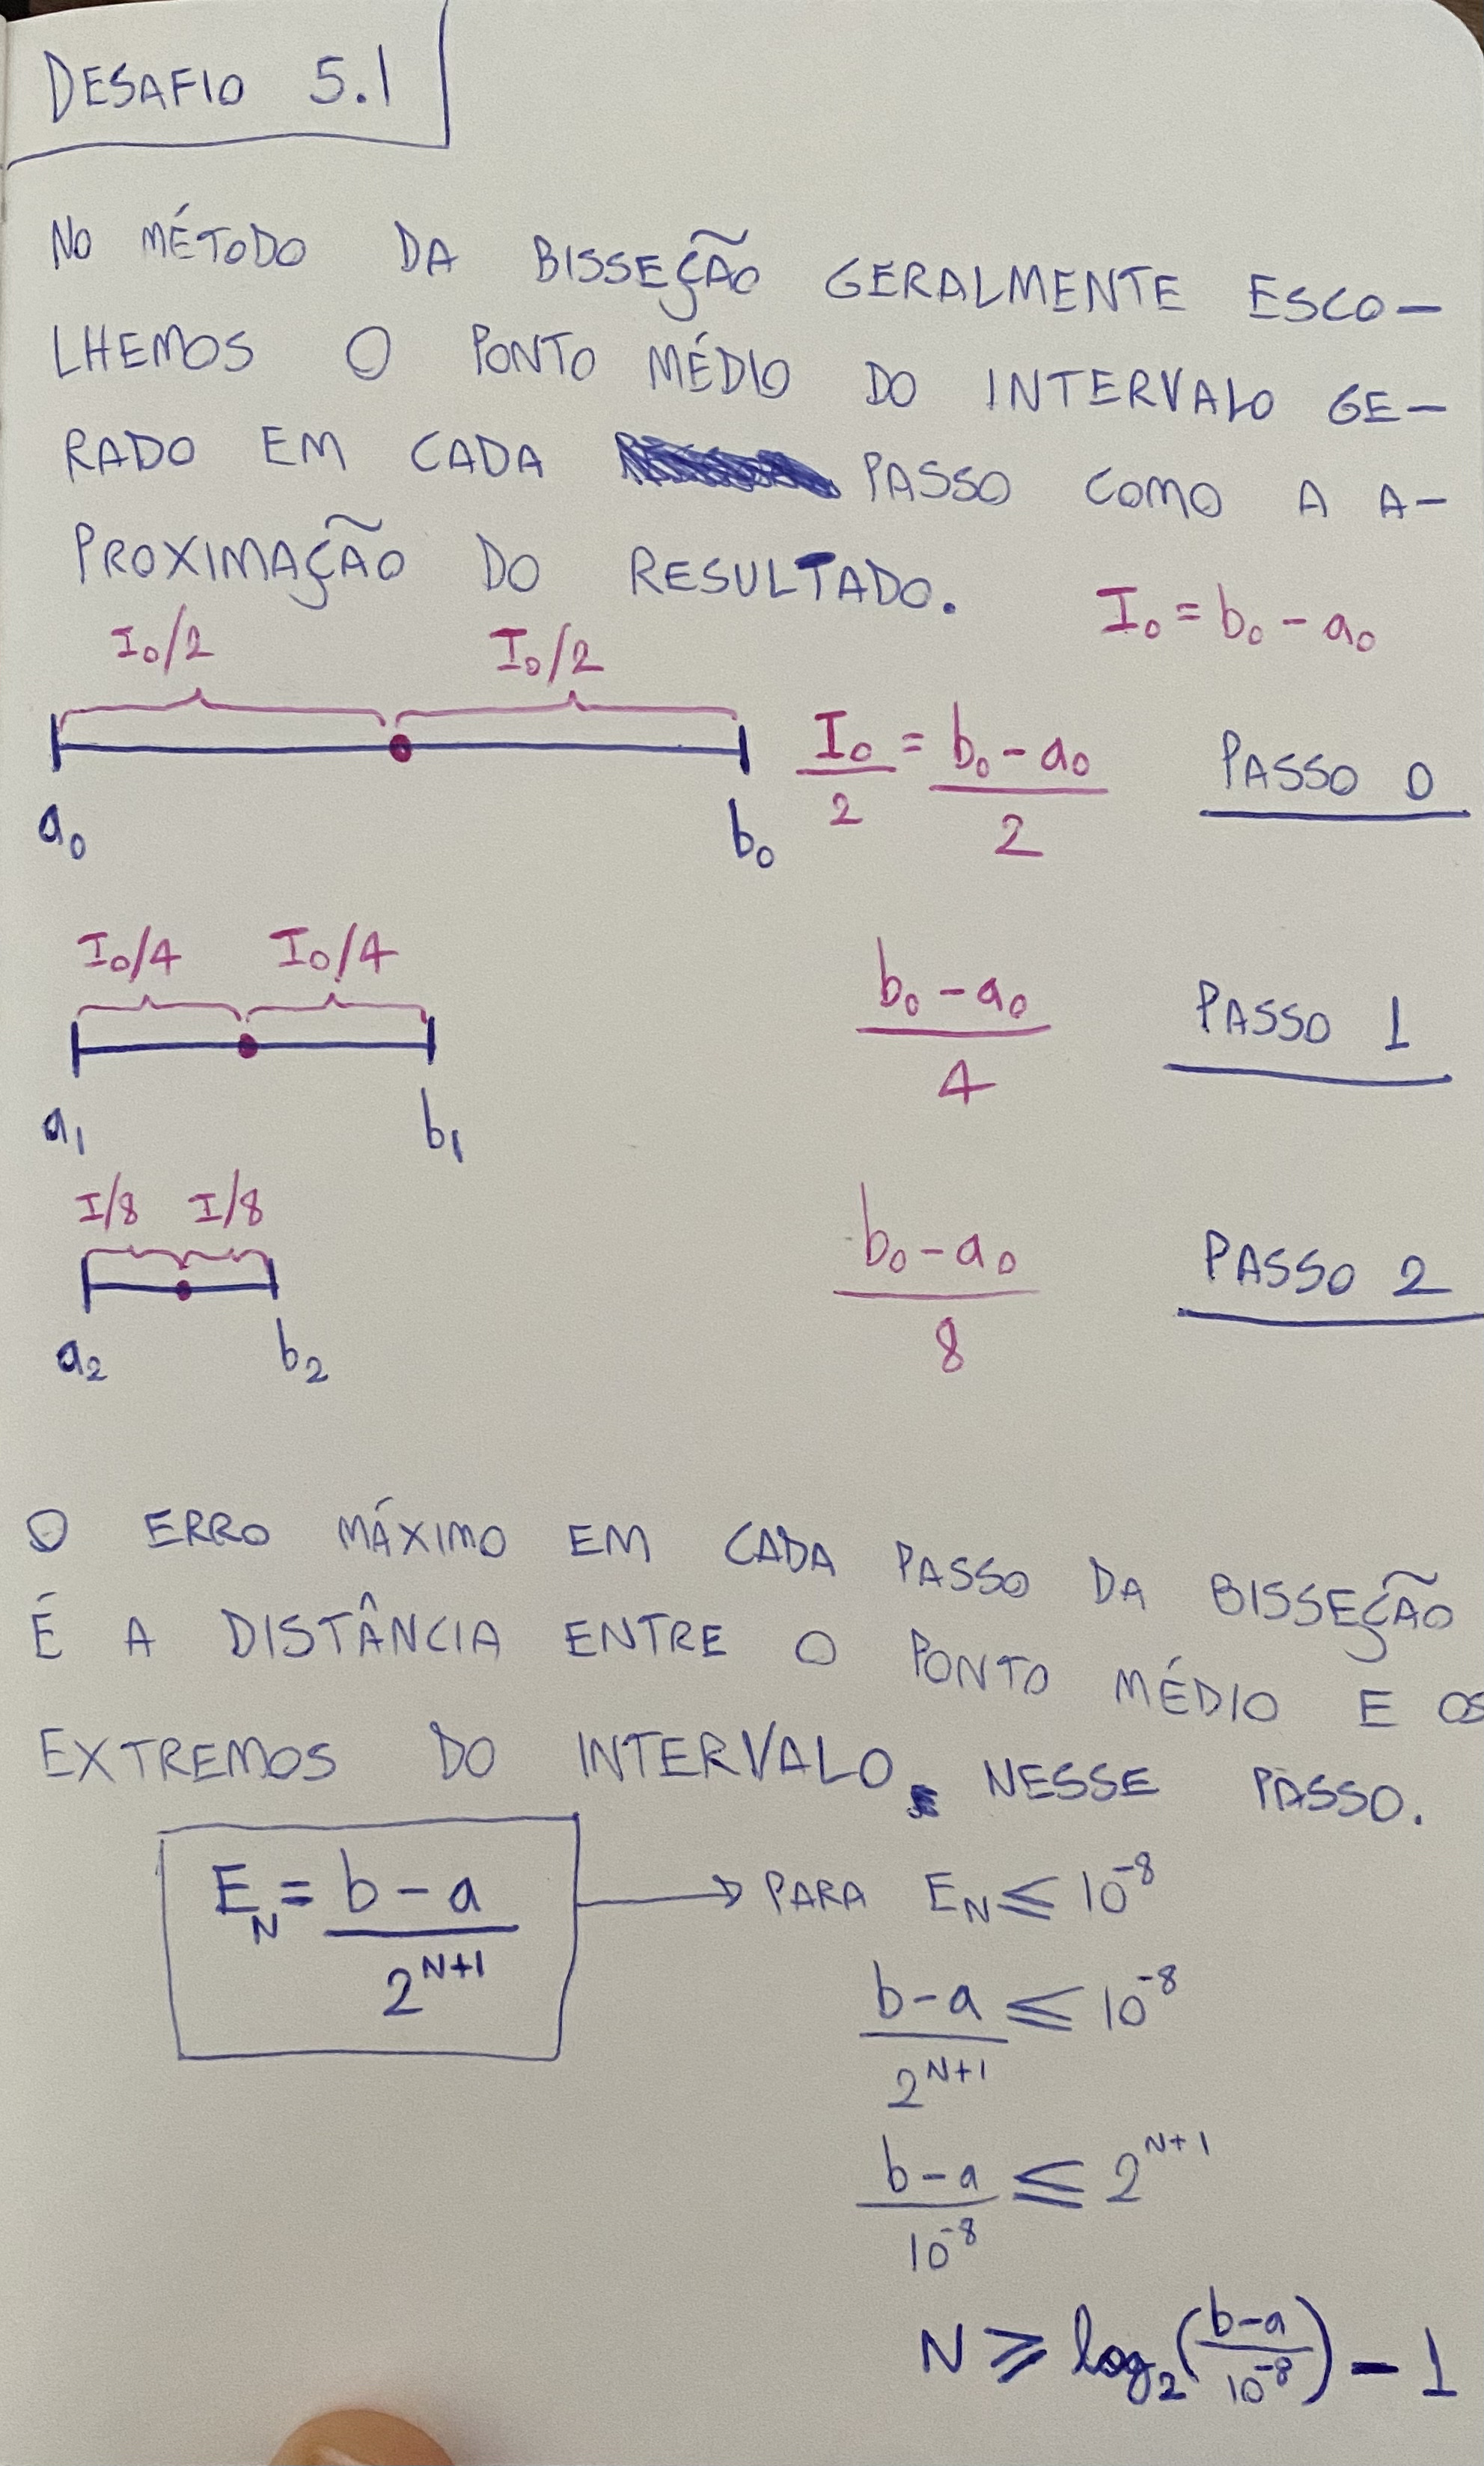 DESAFIO 5.1
NO MÉTODO DA BISSEÇÃO GERALMENTE ESCO-
LHEMOS O PONTO MÉDIO DO INTERVALO GE-
RADO EM CADA PASSO COMO A A-
PROXIMAÇÃO DO RESULTADO.
I₀ = b₀ - a₀
I₀/2 I₀/2
I₀/2 = (b₀ - a₀)/2 PASSO 0
a₀ b₀
I₀/4 I₀/4
(b₀ - a₀)/4 PASSO 1
a₁ b₁
I/8 I/8
(b₀ - a₀)/8 PASSO 2
a₂ b₂
O ERRO MÁXIMO EM CADA PASSO DA BISSEÇÃO
É A DISTÂNCIA ENTRE O PONTO MÉDIO E OS
EXTREMOS DO INTERVALO NESSE PASSO.
E_N = (b - a)/2^(N+1) → PARA E_N ≤ 10⁻⁸
(b - a)/2^(N+1) ≤ 10⁻⁸
(b - a)/10⁻⁸ ≤ 2^(N+1)
N ≥ log₂((b - a)/10⁻⁸) - 1